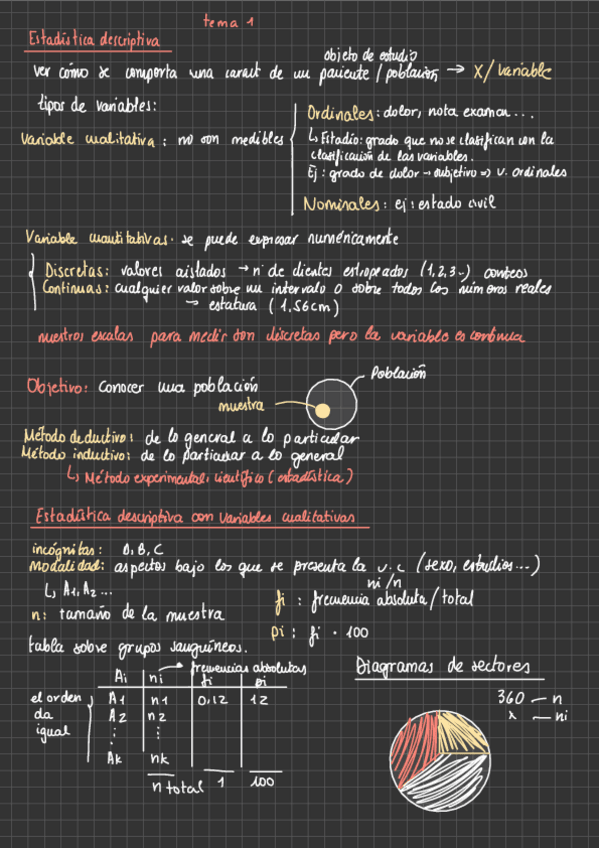 tema 1
Estadística descriptiva
objeto de estudio
ver cómo se comporta una caract de un paciente / población → X / variable
tipos de variables:
Variable cualitativa: no son medibles
Ordinales: dolor, nota examen...
↳ Estadío: grado que no se clasifican con la
clasificación de las variables.
Ej: grado de dolor → subjetivo => v. ordinales
Nominales: ej: estado civil
Variable cuantitativas: se puede expresar numéricamente
Discretas: valores aislados → nº de dientes estropeados (1,2,3..) conteos
Continuas: cualquier valor sobre un intervalo o sobre todos los números reales
→ estatura (1.56cm)
nuestros escalas para medir son discretas pero la variable es continua
Objetivo: conocer una población
Población
muestra
Método deductivo: de lo general a lo particular
Método inductivo: de lo particular a lo general
↳ Método experimental, científico (estadística)
Estadística descriptiva con variables cualitativas
incógnitas: A, B, C
Modalidad: aspectos bajo los que se presenta la v.c (sexo, estudios...)
↳ A1, A2 ...
ni/n
fi: frecuencia absoluta / total
n: tamaño de la muestra
pi: fi · 100
tabla sobre grupos sanguíneos.
→ frecuencias absolutas
Diagramas de sectores
Ai ni fi pi
el orden
da
igual
A1 n1 0,12 12
A2 n2
⋮ ⋮
Ak nk
n total 1 100
360 — n
x — ni